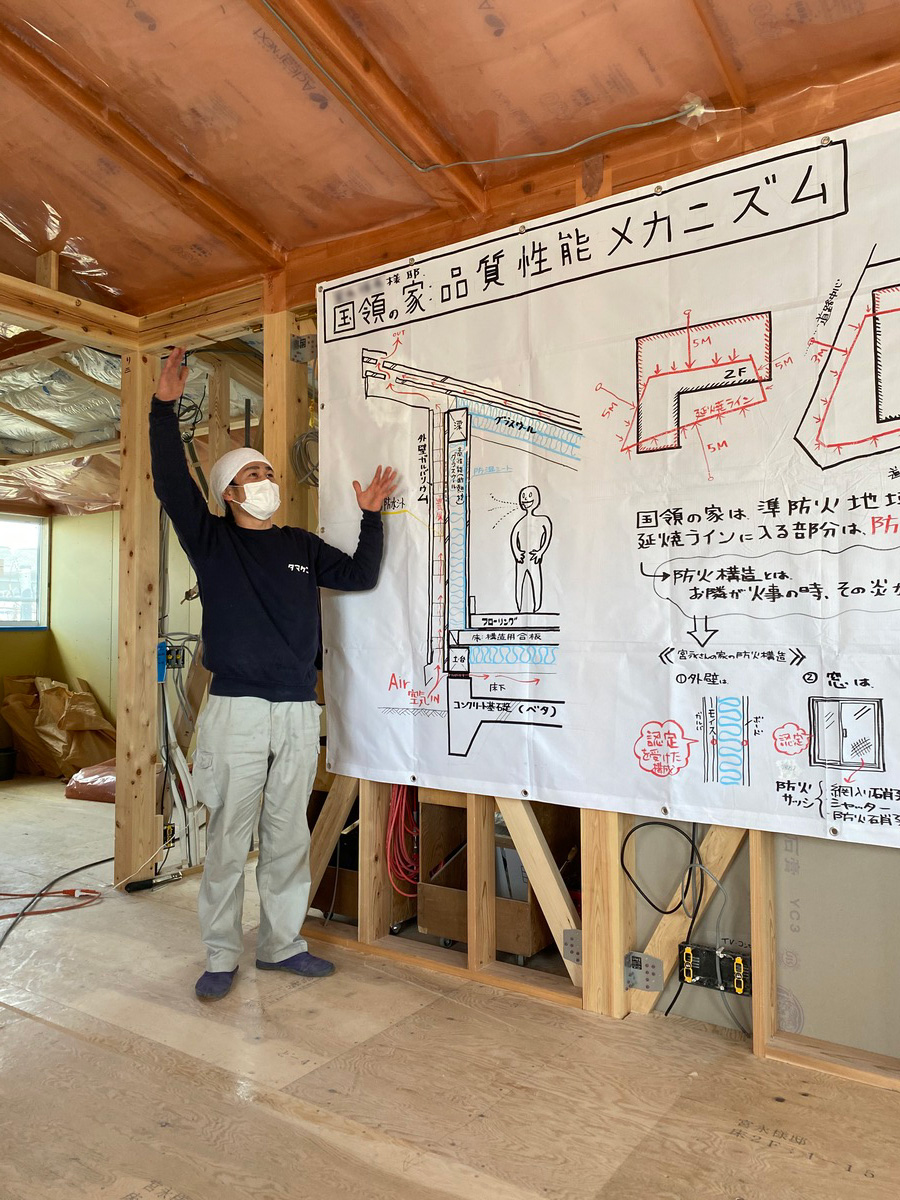 様邸
国領の家:品質性能 メカニズム
OUT
グラスウール
外壁ガルバリウム
防湿シート
防水シート
フローリング
床・構造用合板
土台
床下
Air
空気IN
コンクリート基礎 (ベタ)
5M
5M
2F
5M
延焼ライン
5M
道路中心
3M
国領の家は、準防火地域
延焼ラインに入る部分は、防
防火構造とは、
お隣が火事の時、その炎が
《宮永さんの家の防火構造》
①外壁は
② 窓は
ガルバ
モイス
ボード
認定
を受けた
構成
認定
防火
サッシ
網入り硝子
シャッター
防火硝子
タマケン
リニ
YC3
TVコン
宮永様邸
床2F-1-15